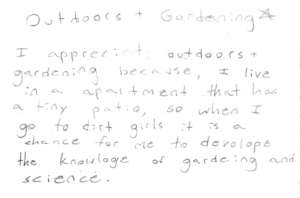 Outdoors + Gardening
I apprecict outdoors +
gardening because, I live
in a apartment that has
a tiny patio, so when I
go to dirt girls it is a
chance for me to devolope
the knowloge of gardeing and
science.